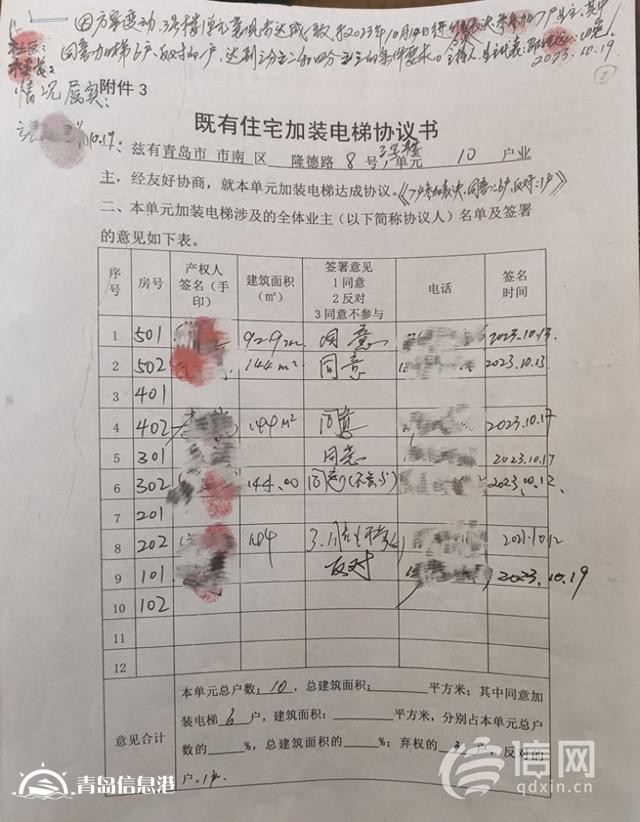 因方案变动,3号楼1单元意见未达成一致,于2023年10月19日进行表决,参加7户业主,其中
同意加梯6户,反对的1户,达到三分之二和四分之三的条件要求。
2023.10.19
社区:
情况属实:
10.19
附件 3
既有住宅加装电梯协议书
兹有青岛市 市南 区 隆德路 8 号 单元 10 户业
主,经友好协商,就本单元加装电梯达成协议。《7户参加表决,同意:6户,反对:1户》
二、本单元加装电梯涉及的全体业主(以下简称协议人)名单及签署
的意见如下表。
序号 房号 产权人签名(手印) 建筑面积(㎡) 签署意见 1 同意 2 反对 3 同意不参与 电话 签名时间
1 501 92.9m² 同意 2023.10.13
2 502 144m² 同意 2023.10.13
3 401
4 402 144m² 同意 2023.10.17
5 301 同意 2023.10.17
6 302 144.00 同意(不参与) 2023.10.12
7 201
8 202 3. 10.12
9 101 反对 2023.10.19
10 102
11
12
意见合计
本单元总户数:10,总建筑面积: 平方米;其中同意加
装电梯 6 户,建筑面积: 平方米,分别占本单元总户
数的 %,总建筑面积的 %;弃权的 3 户,反对的
户。1户
青岛信息港
信网
qdxin.cn